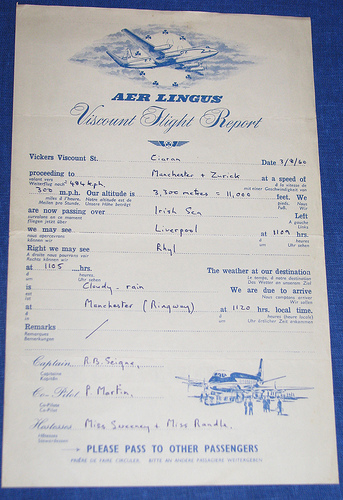 AER LINGUS
Viscount Flight Report
Vickers Viscount St. Ciaran Date 3/9/60
proceeding to Manchester + Zurich at a speed of
volant vers à la vitesse de
484 k.p.h. mit einer Geschwindigkeit von
300 m.p.h. Our altitude is 3,300 metres = 11,000 feet. We
milles à l'heure. Notre altitude est de pieds. Nous
Meilen pro Stunde. Unsere Höhe beträgt Fuß. Wir
are now passing over Irish Sea Left
survolons en ce moment A gauche
fliegen jetzt über Links
we may see Liverpool at 1109 hrs.
nous apercevrons à heures
können wir um Uhr sehen
Right we may see Rhyl
A droite nous pourrons voir
Rechts können wir
at 1105 hrs. The weather at our destination
à heures. Le temps, à notre destination
um Uhr sehen Das Wetter an unserem Ziel
is Cloudy - rain We are due to arrive
est Nous comptons arriver
ist Wir sollen
at Manchester (Ringway) at 1120 hrs. local time.
à à heures (heure locale)
in um Uhr örtlicher Zeit ankommen
Remarks /
Remarques
Bemerkungen
Captain R.B.
Capitaine
Kapitän
Co-Pilot P. Martin.
Co-Pilote
Co-Pilot
Hostesses Miss Sweeney + Miss Randle.
Hôtesses
PLEASE PASS TO OTHER PASSENGERS
PRIÈRE DE FAIRE CIRCULER. BITTE AN ANDERE PASSAGIERE WEITERGEBEN